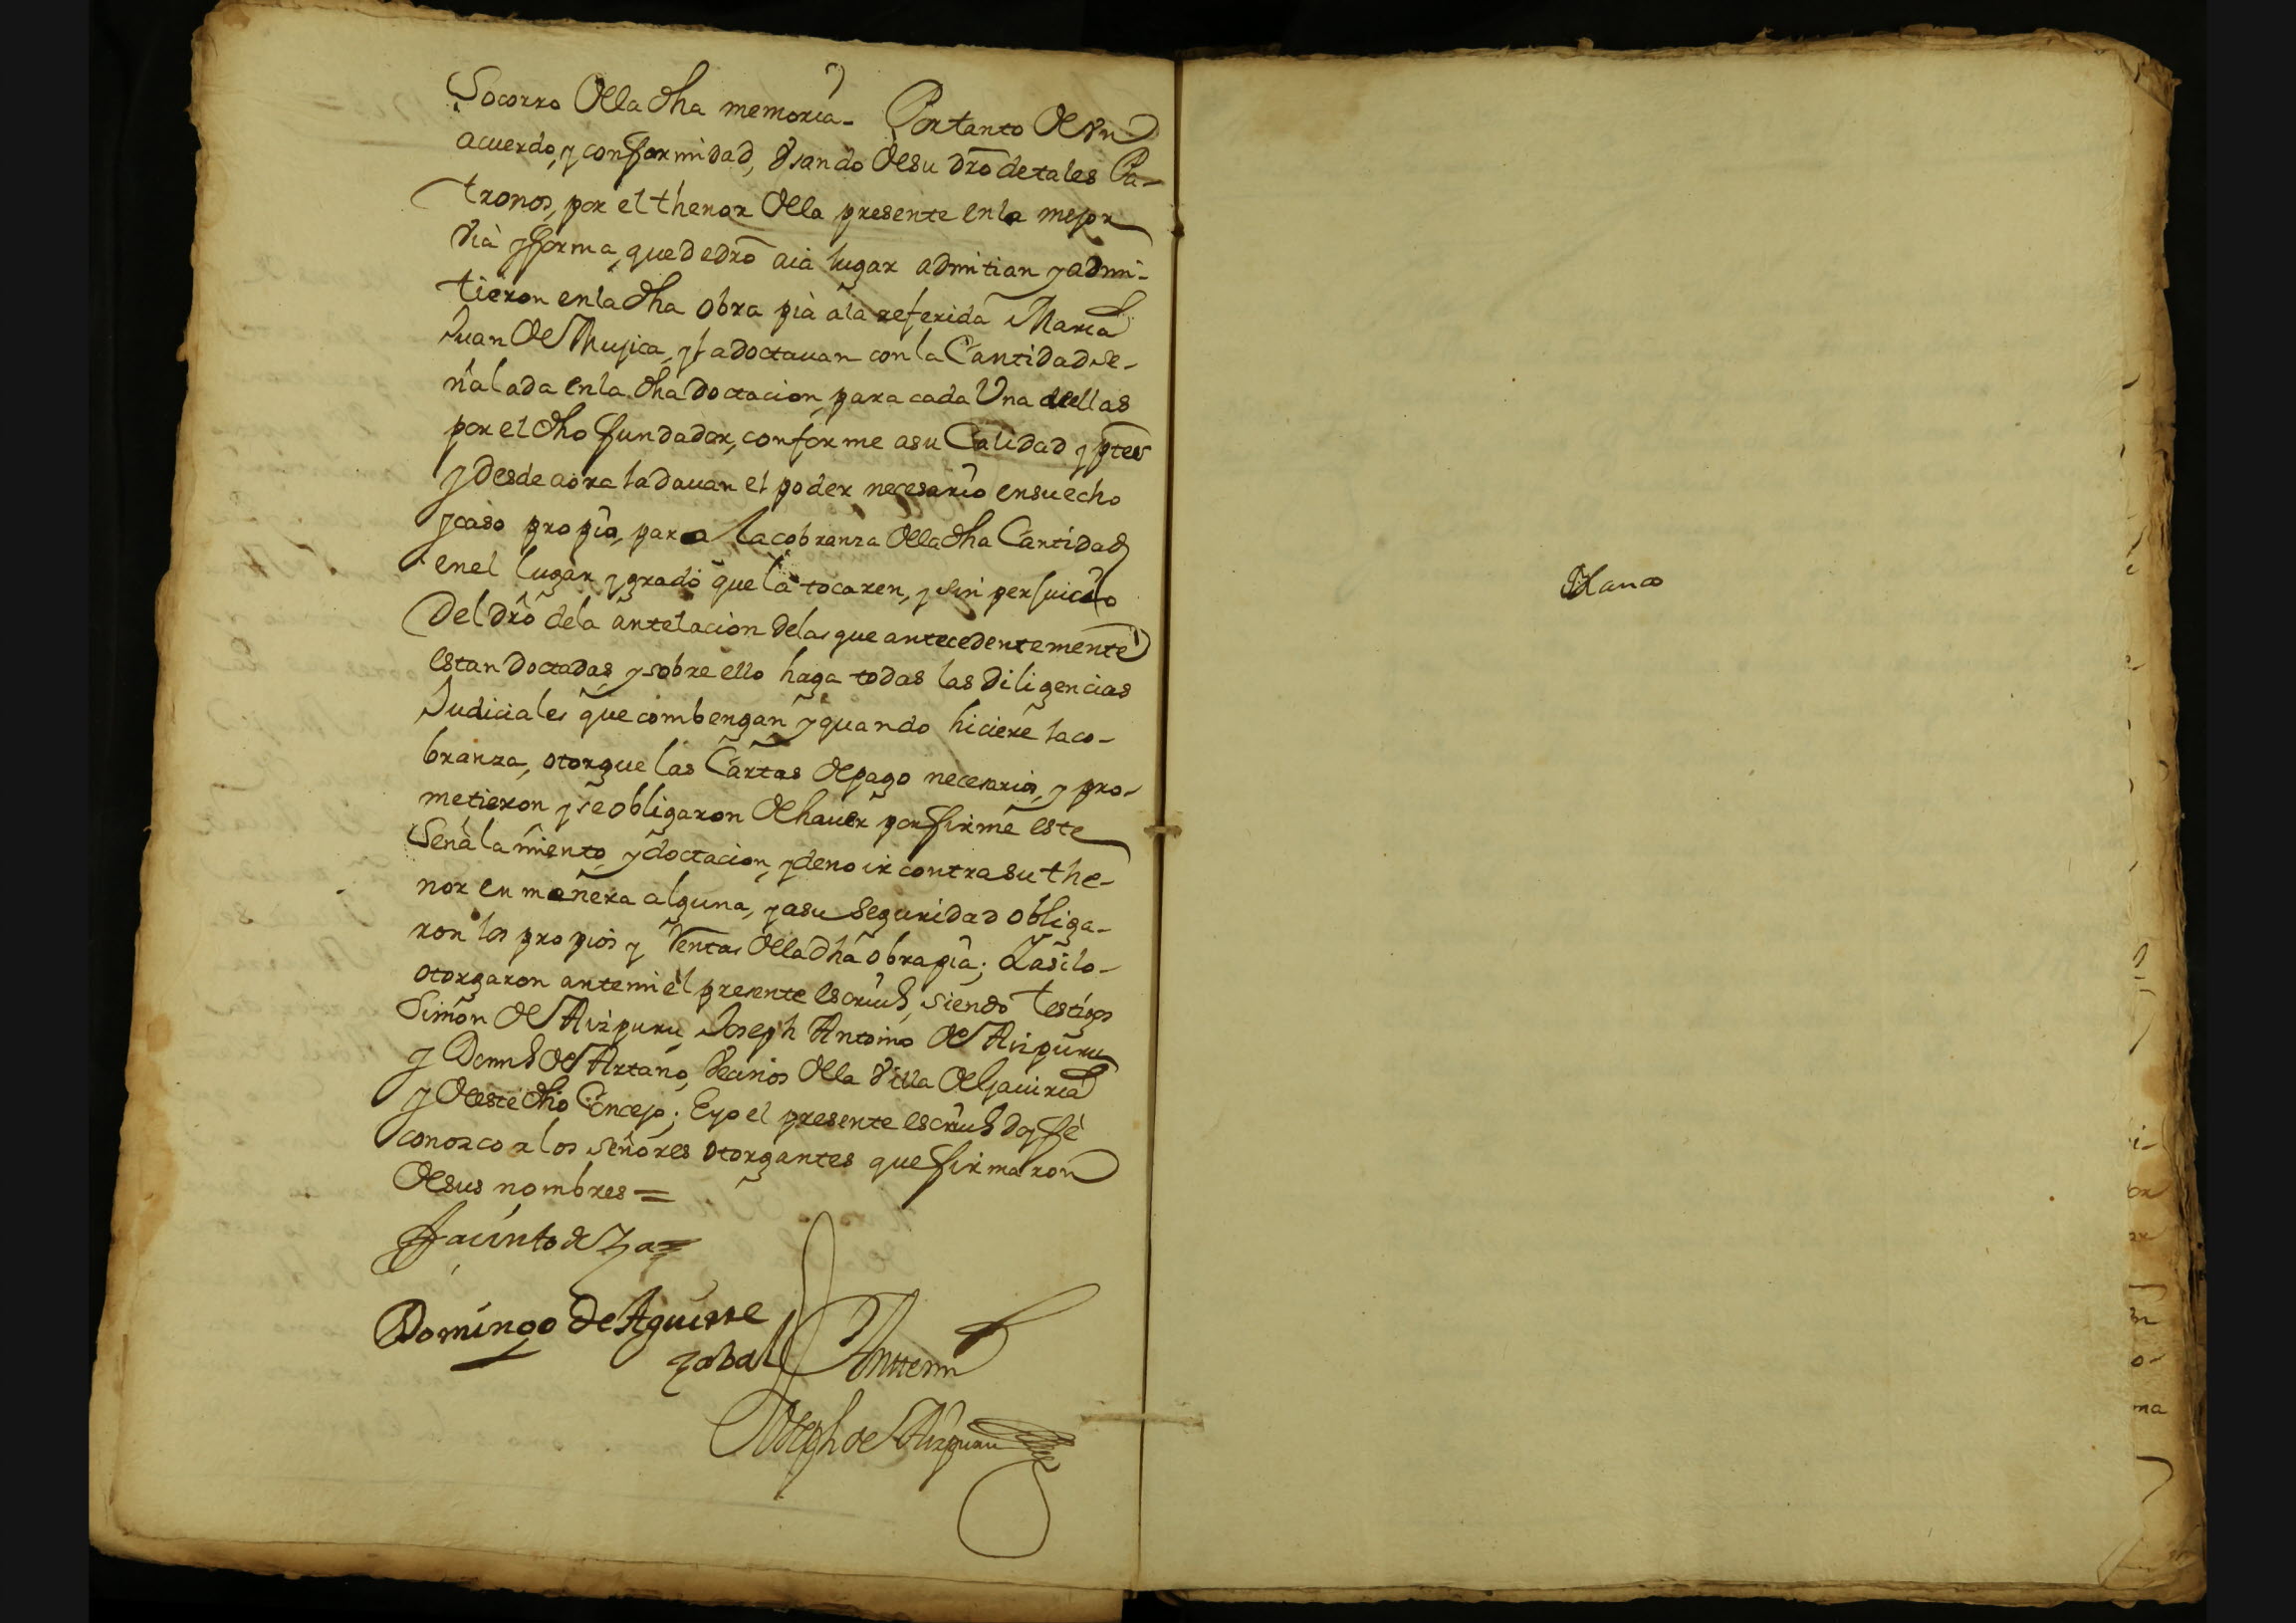 Socorro della dha memoria. Portanto de vn
acuerdo, y conformidad, vsando desu dro detales Pa-
tronos, por el thenor della presente enla mejor
via y forma, quededro aia lugar admitian y admi-
tieron enla dha obra pia ala referida Maria
Juan de Mujica, y la doctauan con la Cantidad se-
ñalada enla dha doctacion, para cada Una dellas
por el dho fundador, conforme asu Calidad y ptes
y desde aora la dauan el poder necesario ensuecho
y caso propio, para la cobranza della dha Cantidad
enel lugar y grado que la tocaren, y sin perjuicio
del dro dela antelacion delas que antecedentemente
estan doctadas, y sobre ello haga todas las diligencias
Judiciales que combengan y quando hiciere la co-
branza, otorgue las Cartas de pago necesarias, y pro-
metieron y se obligaron de hauer por firme este
Señalamiento, y doctacion, y deno ir contra su the-
nor en manera alguna, y asu seguridad obliga-
ron los propios y Rentas della dha obra pia; y asi lo
otorgaron antemi el presente escriuo, siendo testigos
Simon de Aizpuru, Joseph Antonio de Aizpuru
y Domo de Artano, vecinos della villa de Gauiria
y deeste dho Concejo; E yo el presente escriuo doy fè
conozco a los señores otorgantes que firmaron
desus nombres =
Jacinto de
Domingo de Aguirre
zabal Anttemi
Joseph de Aizpuru
Blanco